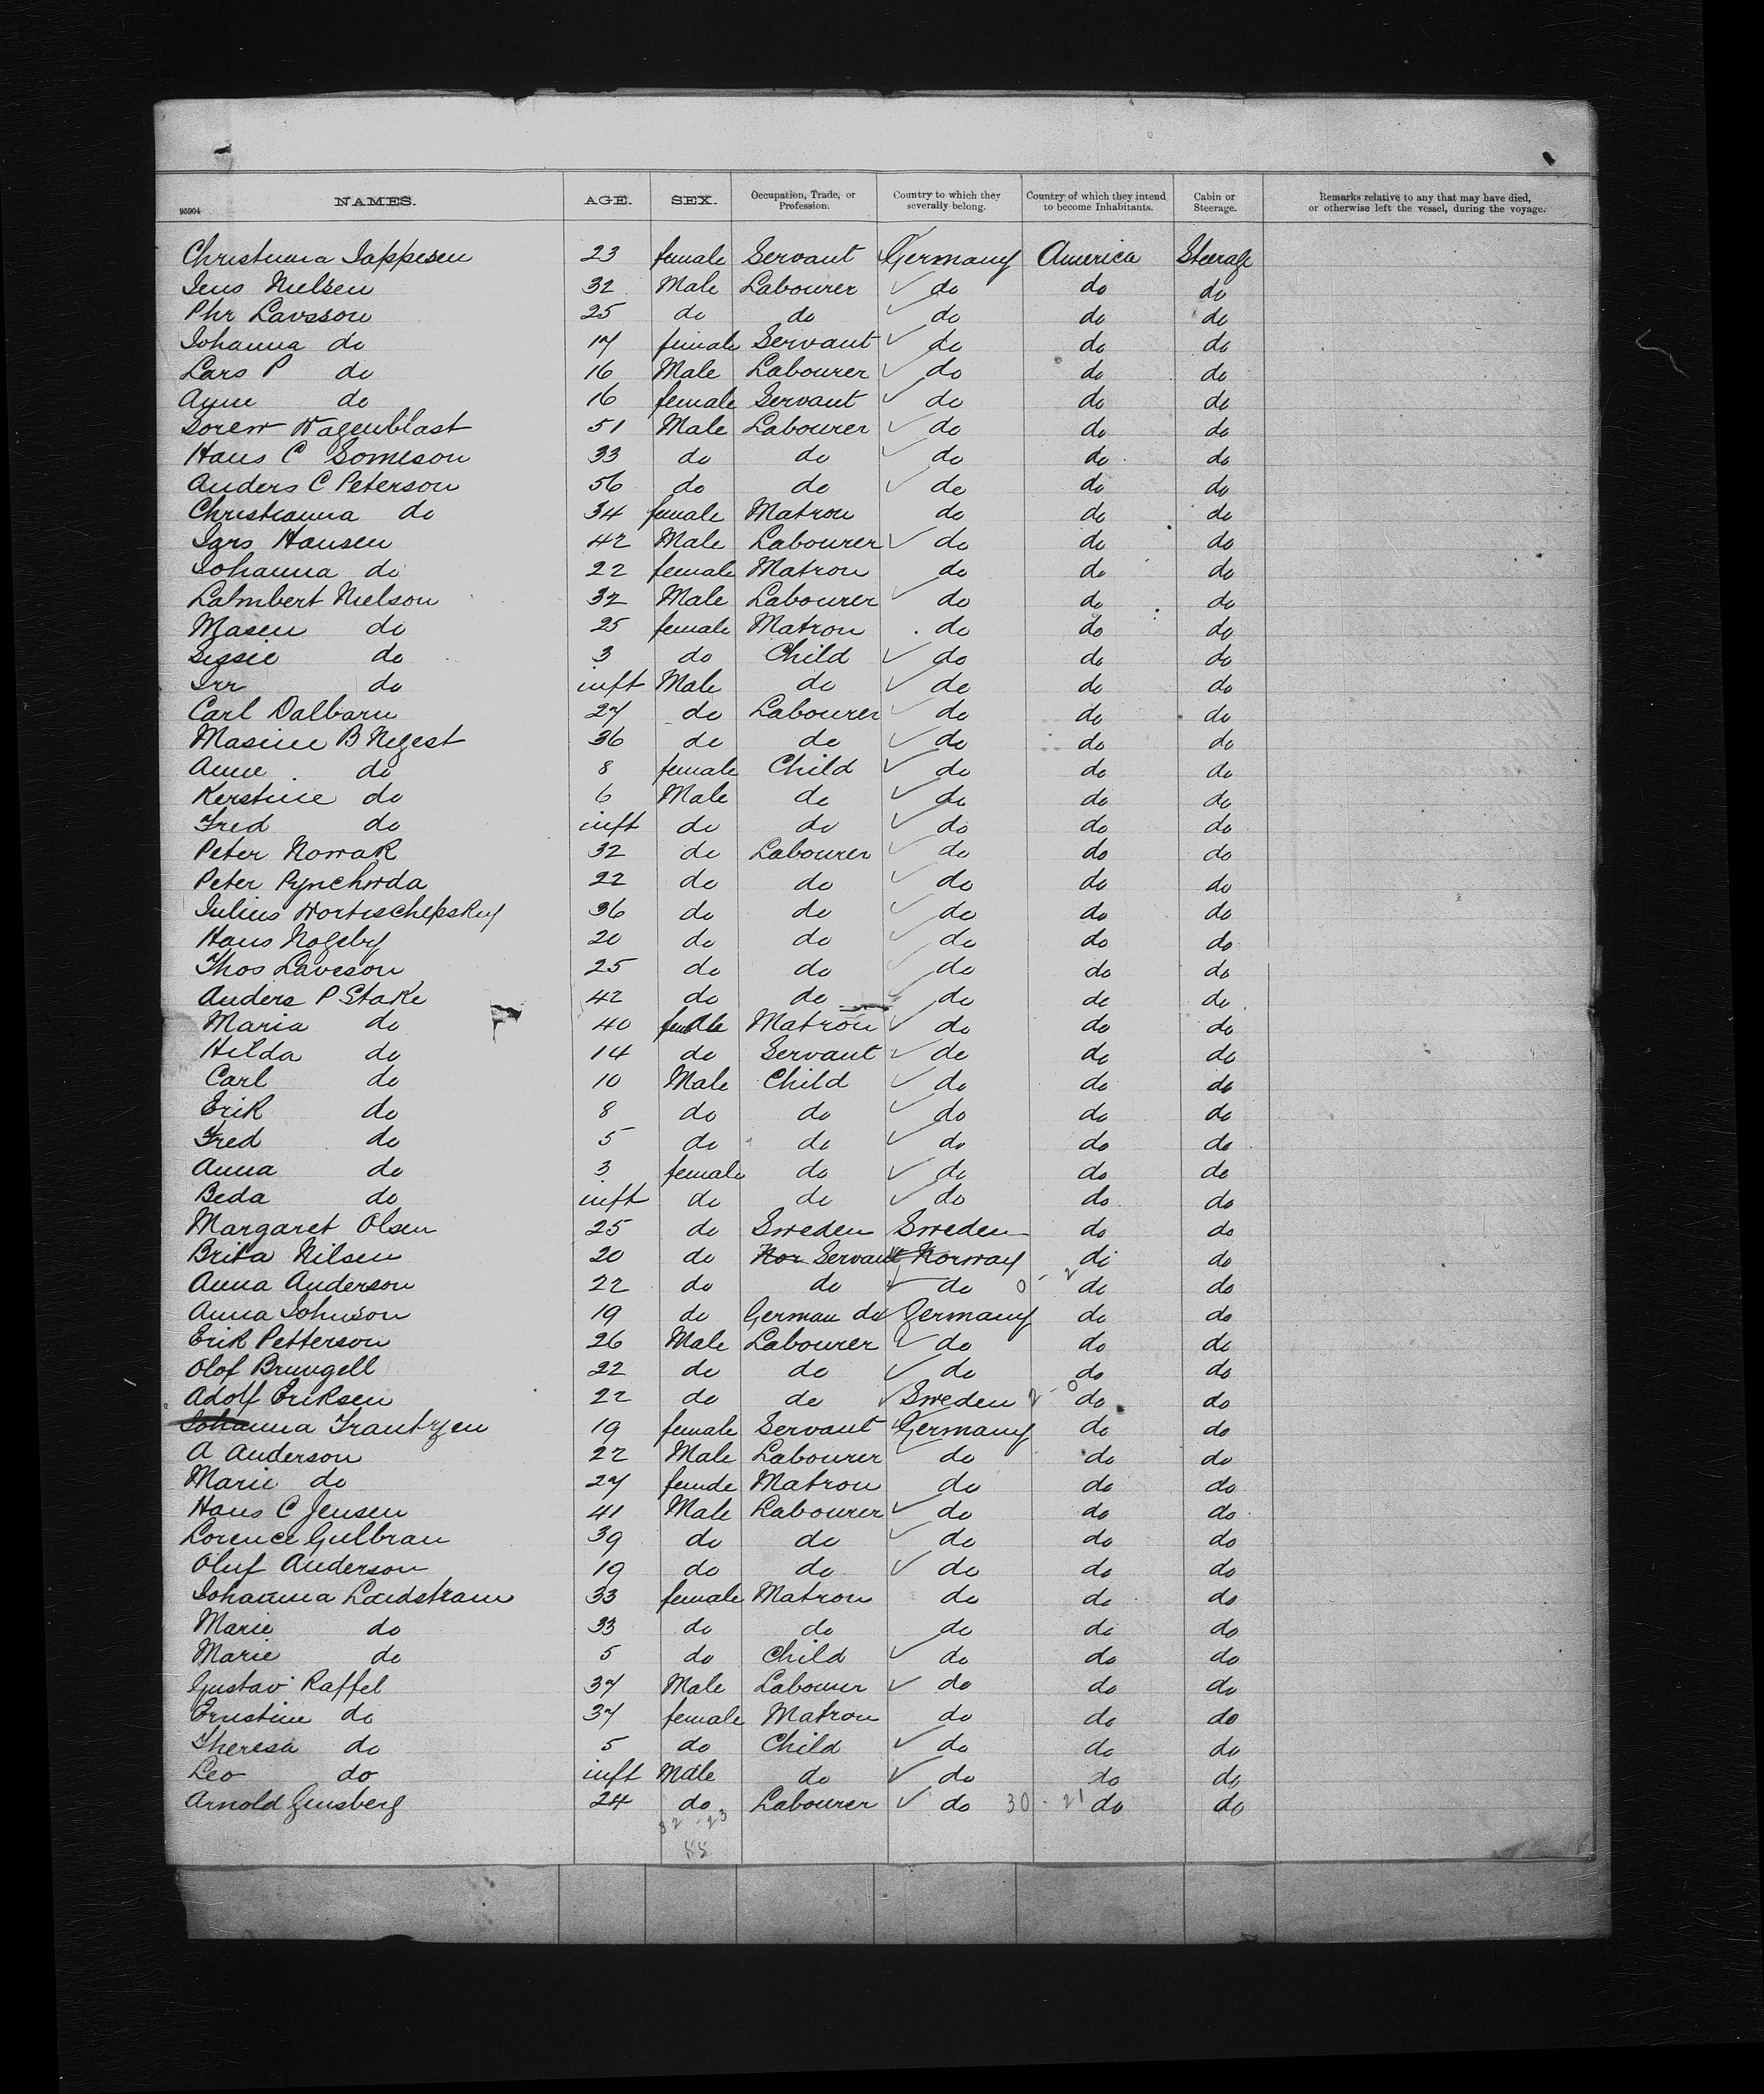 95904 NAMES. AGE. SEX. Occupation, Trade, or Profession. Country to which they severally belong. Country of which they intend to become Inhabitants. Cabin or Steerage. Remarks relative to any that may have died, or otherwise left the vessel, during the voyage.
Christiana Jappesen 23 female Servant Germany America Steerage
Jens Nielsen 32 Male Labourer do do do
Phr Lavsson 25 do do do do do
Johanna do 17 female Servant do do do
Lars P do 16 Male Labourer do do do
Anne do 16 female Servant do do do
Soren Wagenblast 51 Male Labourer do do do
Hans C Someson 33 do do do do do
Anders C Peterson 56 do do do do do
Christianna do 34 female Matron do do do
Lars Hansen 42 Male Labourer do do do
Johanna do 22 female Matron do do do
Lambert Nielson 32 Male Labourer do do do
Masen do 25 female Matron do do do
Sissie do 3 do Child do do do
Irr do inft Male do do do do
Carl Dalbarn 27 do Labourer do do do
Masine B Negest 36 do do do do do
Anne do 8 female Child do do do
Kerstine do 6 Male do do do do
Fred do inft do do do do do
Peter Nowak 32 do Labourer do do do
Peter Pynchwda 22 do do do do do
Julius Wortischepsky 36 do do do do do
Hans Nogeby 20 do do do do do
Thos Laveson 25 do do do do do
Anders P Stake 42 do do do do do
Maria do 40 female Matron do do do
Hilda do 14 do Servant do do do
Carl do 10 Male Child do do do
Erik do 8 do do do do do
Fred do 5 do do do do do
Anna do 3 female do do do do
Beda do inft do do do do do
Margaret Olsen 25 do Sweden Sweden do do
Brita Nilsen 20 do Nor Servant Norway do do
Anna Anderson 22 do do do 0 - 2 do do
Anna Johnson 19 do German do Germany do do
Erik Petterson 26 Male Labourer do do do
Olof Brungell 22 do do do do do
Adolf Eriksen 22 do do Sweden 2 - 0 do do
Johanna Frantzen 19 female Servant Germany do do
A Anderson 22 Male Labourer do do do
Marie do 27 female Matron do do do
Hans C Jensen 41 Male Labourer do do do
Lorence Gulbran 39 do do do do do
Oluf Anderson 19 do do do do do
Johanna Landstram 33 female Matron do do do
Marie do 33 do do do do do
Marie do 5 do Child do do do
Gustav Raffel 37 Male Labourer do do do
Ernstine do 37 female Matron do do do
Theresa do 5 do Child do do do
Leo do inft Male do do do do
Arnold Ginsberg 24 do Labourer do 30 - 21 do do
32 - 23
55